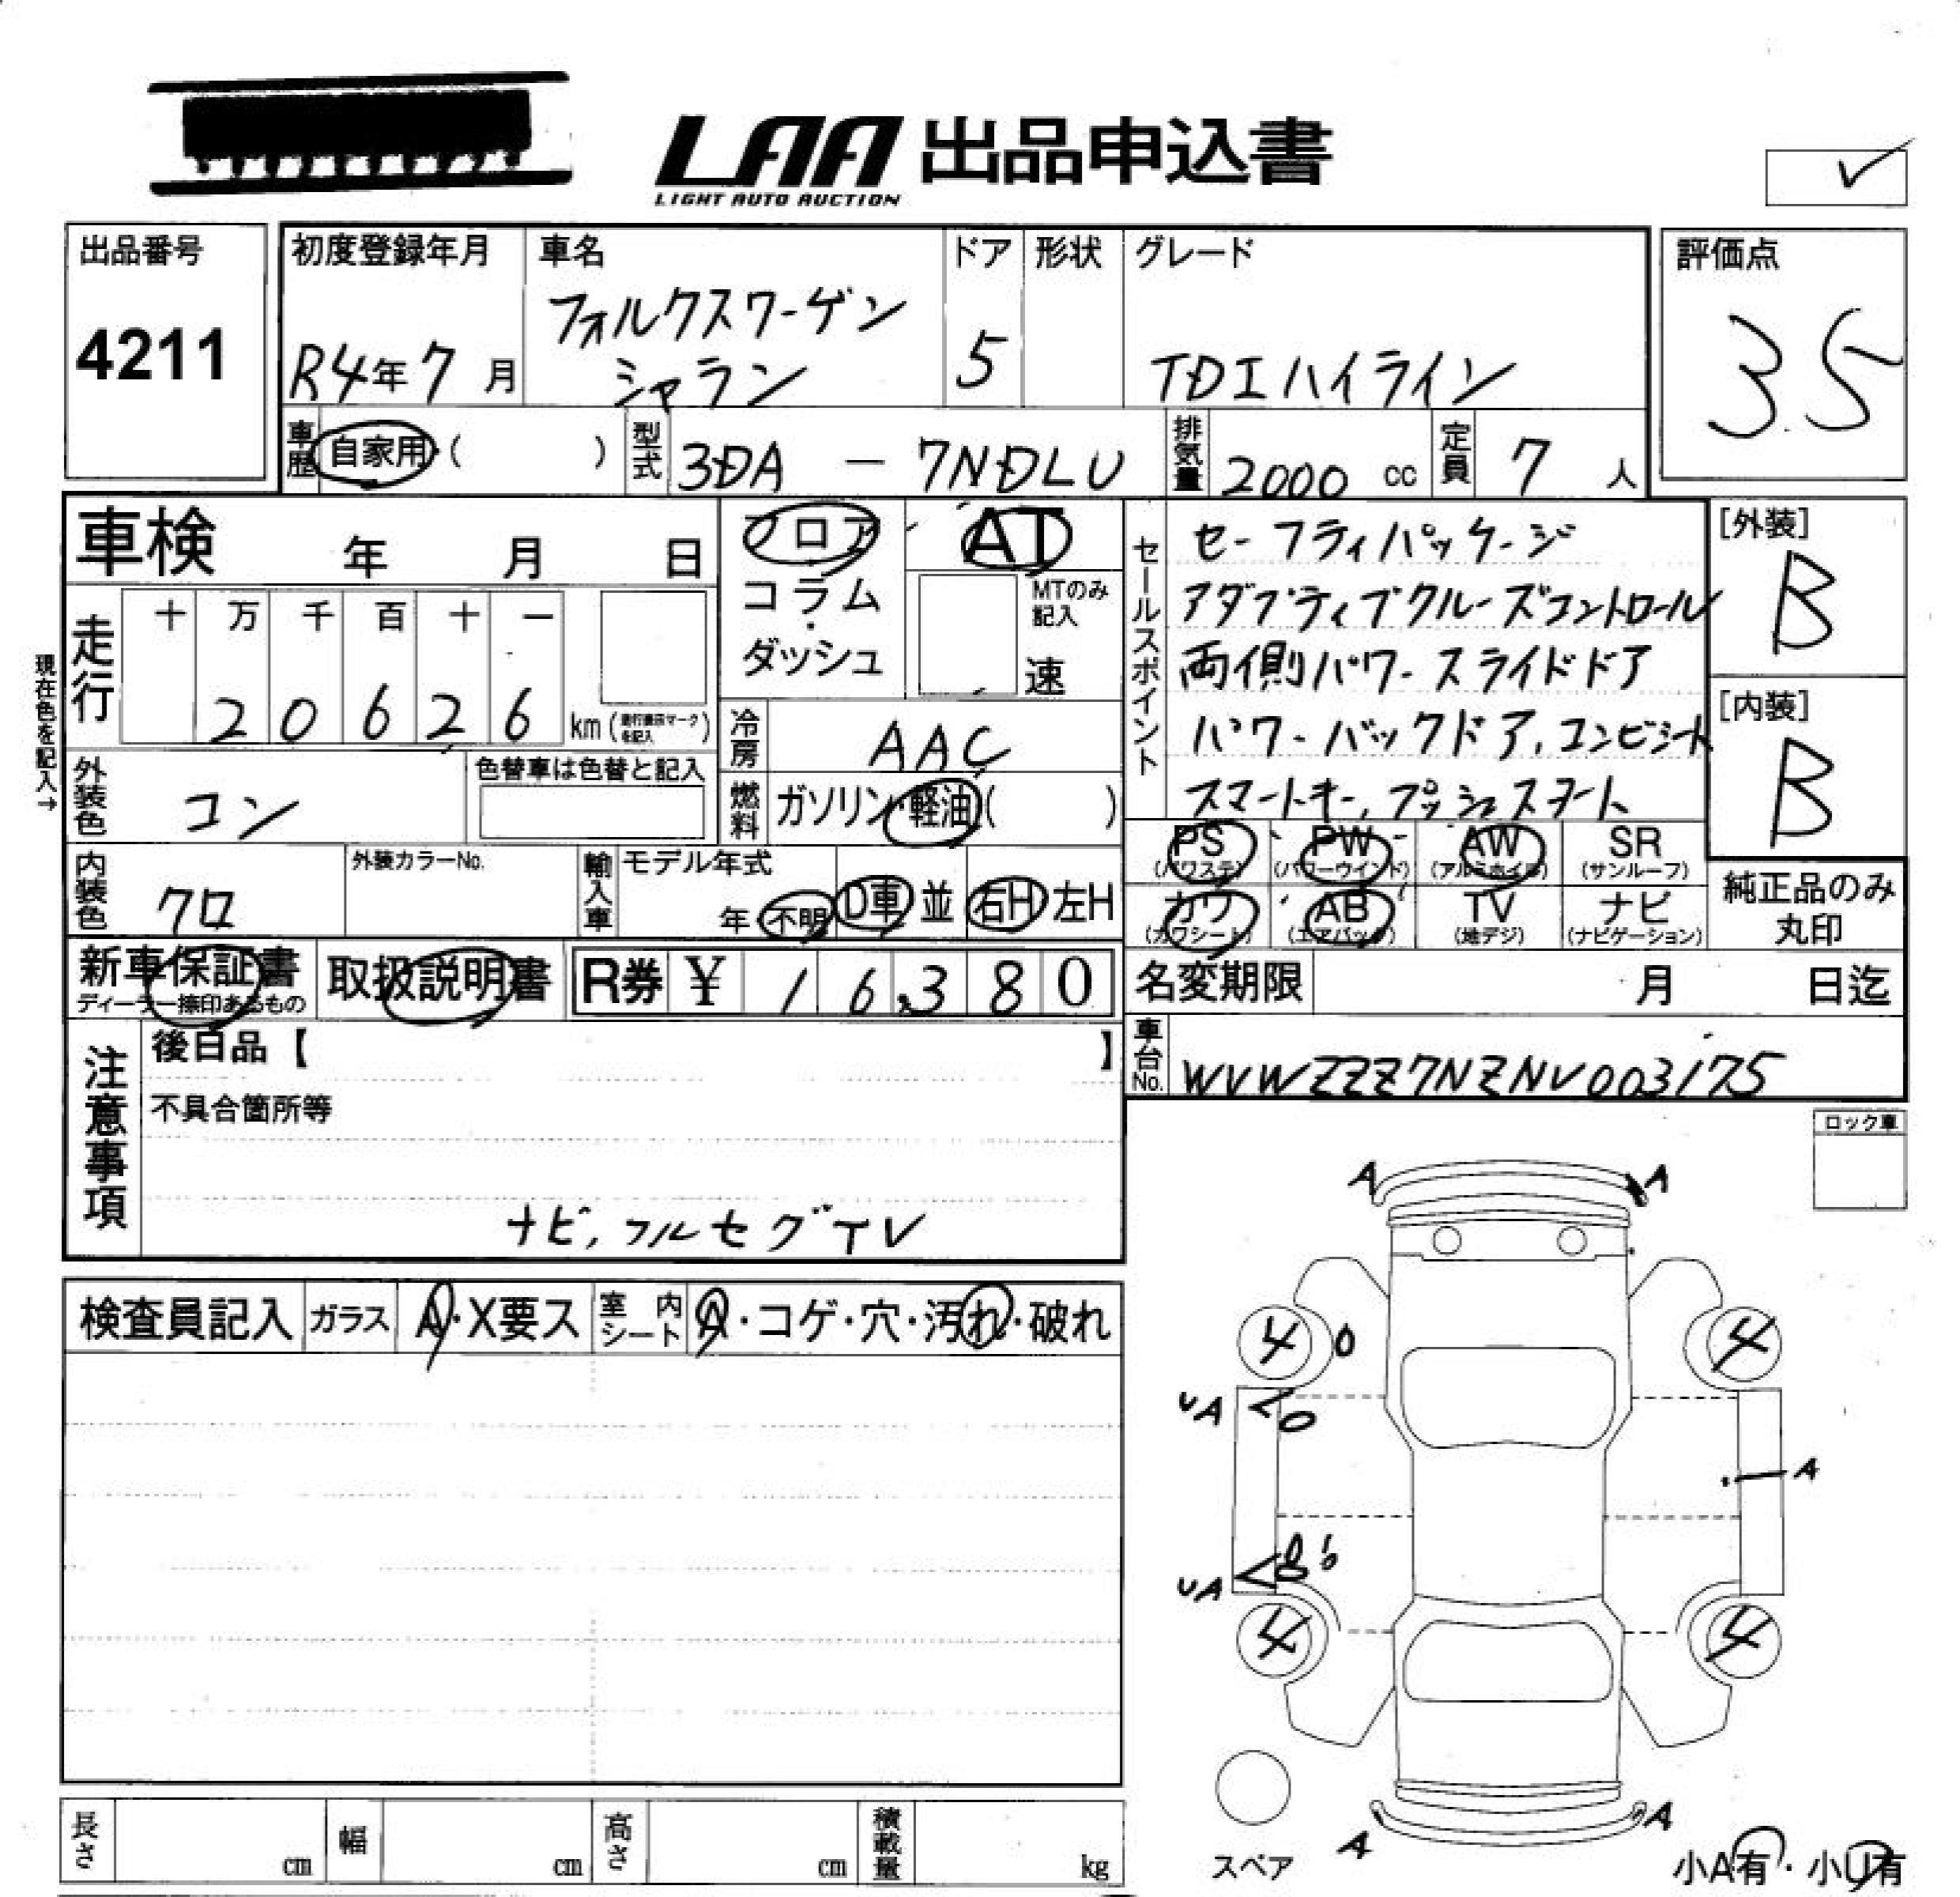 LAA 出品申込書
LIGHT AUTO AUCTION
出品番号
4211
初度登録年月
R4年7月
車名
フォルクスワーゲン
シャラン
ドア
5
形状
グレード
TDIハイライン
評価点
3.5
車歴
自家用・( )
型式
3DA - 7NDLU
排気量
2000 cc
定員
7 人
車検 年 月 日
現在色を記入→
走行
十 万 千 百 十 一
2 0 6 2 6 km(走行表示マークを記入)
フロア
コラム
・
ダッシュ
AT
MTのみ
記入
速
冷房
AAC
燃料
ガソリン・軽油( )
外装色
コン
色替車は色替と記入
内装色
クロ
外装カラーNo.
輸入車
モデル年式
年 不明
D車 並
右H 左H
セールスポイント
セーフティパッケージ
アダプティブクルーズコントロール
両側パワースライドドア
パワーバックドア,コンビシート
スマートキー,プッシュスタート
[外装]
B
[内装]
B
PS
(パワステ)
PW
(パワーウインド)
AW
(アルミホイル)
SR
(サンルーフ)
カワ
(カワシート)
AB
(エアバック)
TV
(地デジ)
ナビ
(ナビゲーション)
純正品のみ
丸印
新車保証書
ディーラー捺印あるもの
取扱説明書
R券 ¥ 16,380
名変期限 月 日迄
車台No.
WVWZZZ7NZNV003175
注意事項
後日品【 】
不具合箇所等
ナビ,フルセグTV
ロック車
検査員記入
ガラス
A・X要ス
室内シート
A・コゲ・穴・汚れ・破れ
A A
4 4
UA
A
UA
4 4
A A
スペア
小A有・小U有
長さ cm
幅 cm
高さ cm
積載量 kg